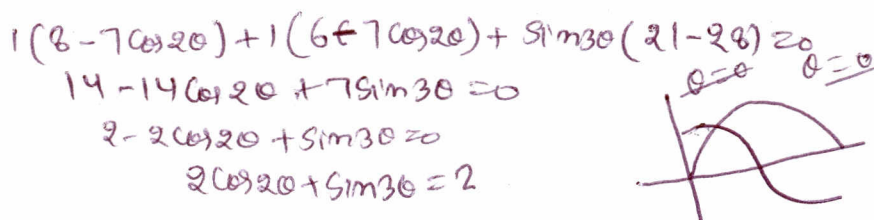 1(8-7cos2θ)+1(6-7cos2θ)+sin3θ(21-28)=0
θ=θ θ=0
14-14cos2θ+7sin3θ=0
2-2cos2θ+sin3θ=0
2cos2θ+sin3θ=2